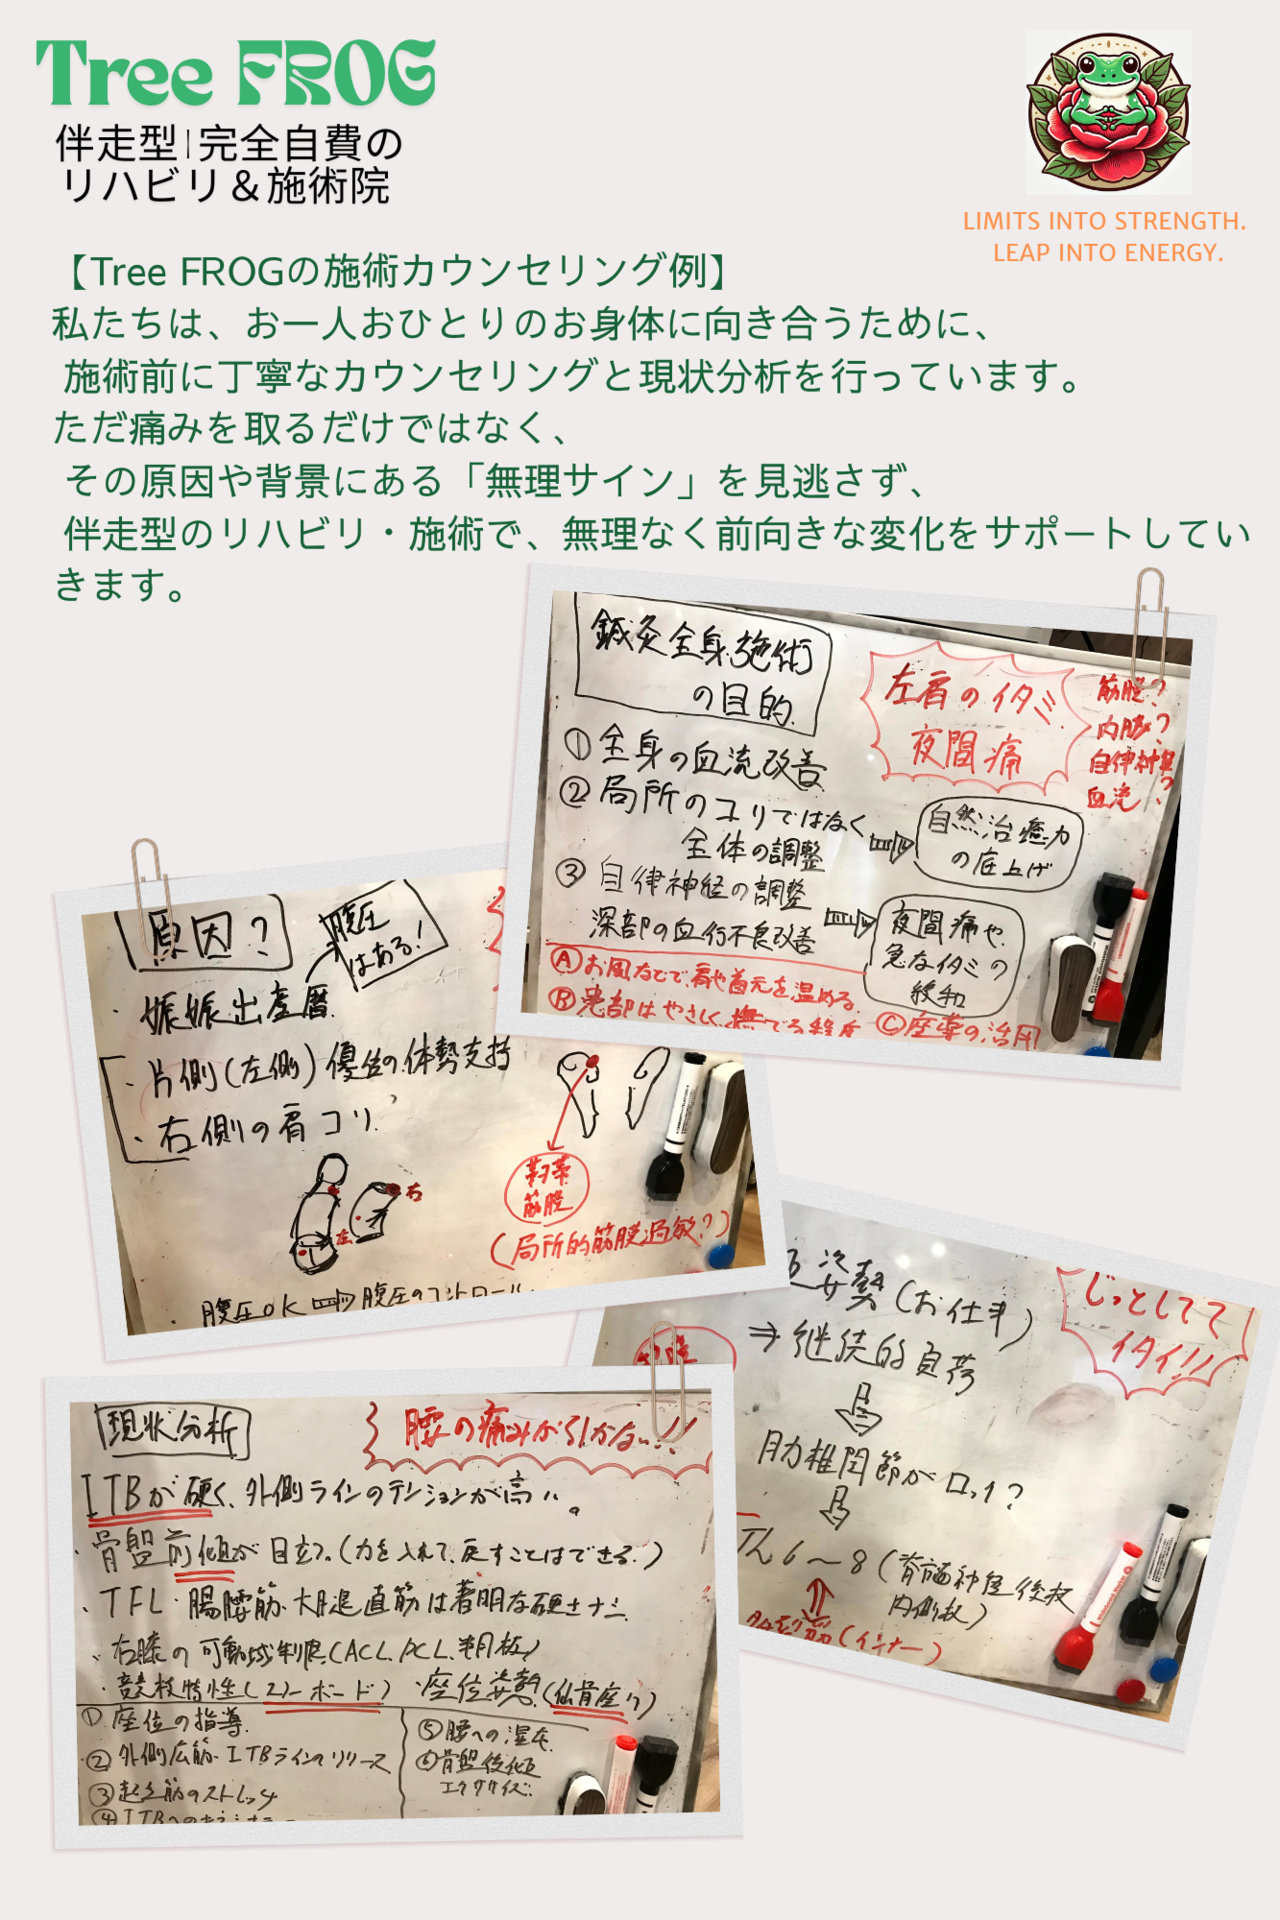 Tree FROG
伴走型|完全自費の
リハビリ＆施術院
LIMITS INTO STRENGTH.
LEAP INTO ENERGY.
【Tree FROGの施術カウンセリング例】
私たちは、お一人おひとりのお身体に向き合うために、
施術前に丁寧なカウンセリングと現状分析を行っています。
ただ痛みを取るだけではなく、
その原因や背景にある「無理サイン」を見逃さず、
伴走型のリハビリ・施術で、無理なく前向きな変化をサポートしてい
きます。
鍼灸全身施術
の目的
左肩のイタミ
夜間痛
筋膜?
内臓?
自律神経
血流?
①全身の血流改善
②局所のコリではなく
全体の調整
自然治癒力
の底上げ
③自律神経の調整
深部の血行不良改善
夜間痛や
急なイタミの
緩和
Ⓐお風などで肩や首元を温める
Ⓑ患部はやさしく撫でる程度
Ⓒ座薬の活用
原因?
腹圧
はある!
・娠娠出産暦
・片側(左側)優位の体勢支持
・右側の肩コリ
右
左
靭帯
筋膜
(局所的筋膜過敏?)
・腹圧OK 腹圧のコントロール
姿勢(お仕事)
⇒継続的負荷
じっとしてて
イタイ!!
肋椎関節がロック?
Th6〜8(脊髄神経後枝
内側枝)
(インナー)
現状分析
腰の痛みが引かない!!
ITBが硬く、外側ラインのテンションが高い。
・骨盤前傾が目立つ。(力を入れて、戻すことはできる。)
・TFL・腸腰筋・大腿直筋は著明な硬さナシ
・右膝の可動域制限(ACL、PCL、半月板)
・競技特性(スノーボード)
・座位姿勢(仙骨座り)
①座位の指導
②外側広筋・ITBラインのリリース
③起立筋のストレッチ
⑤腰への湿布
⑥骨盤後傾
エクササイズ